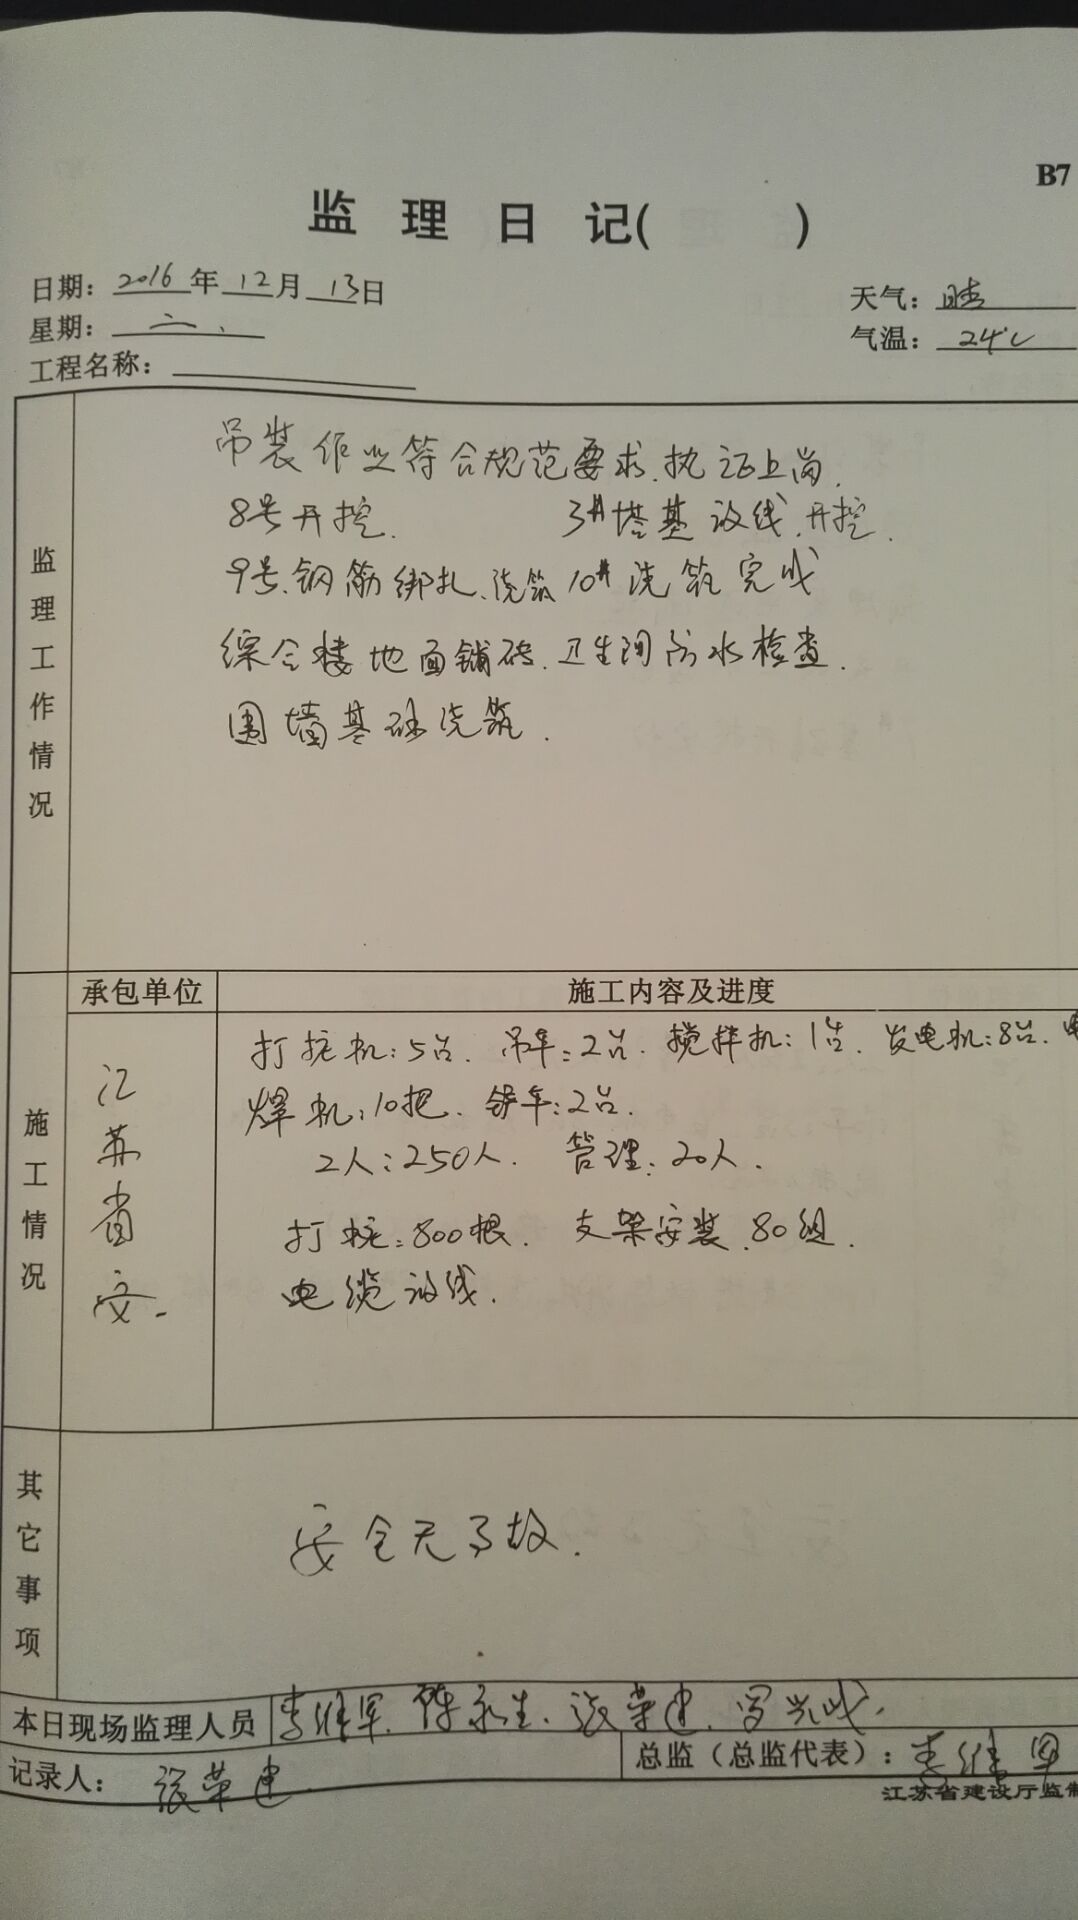 B7
监理日记(        )
日期：2016年12月13日
天气：晴
星期：二.
气温：24℃
工程名称：
监理工作情况
吊装作业符合规范要求.执证上岗.
8号开挖. 3#塔基放线.开挖.
9号.钢筋绑扎.浇筑 10#浇筑完成
综合楼地面铺砖.卫生间防水检查.
围墙基础浇筑.
承包单位
施工内容及进度
施工情况
江苏省安.
打桩机:5台. 吊车:2台. 搅拌机:1台. 发电机:8台. 电
焊机:10把. 铲车:2台.
工人:250人. 管理:20人.
打桩:800根. 支架安装.80组.
电缆放线.
其它事项
安全无事故.
本日现场监理人员 李继军.陈永生.张荣建.罗兴成.
记录人：张荣建
总监（总监代表）：李继军
江苏省建设厅监制